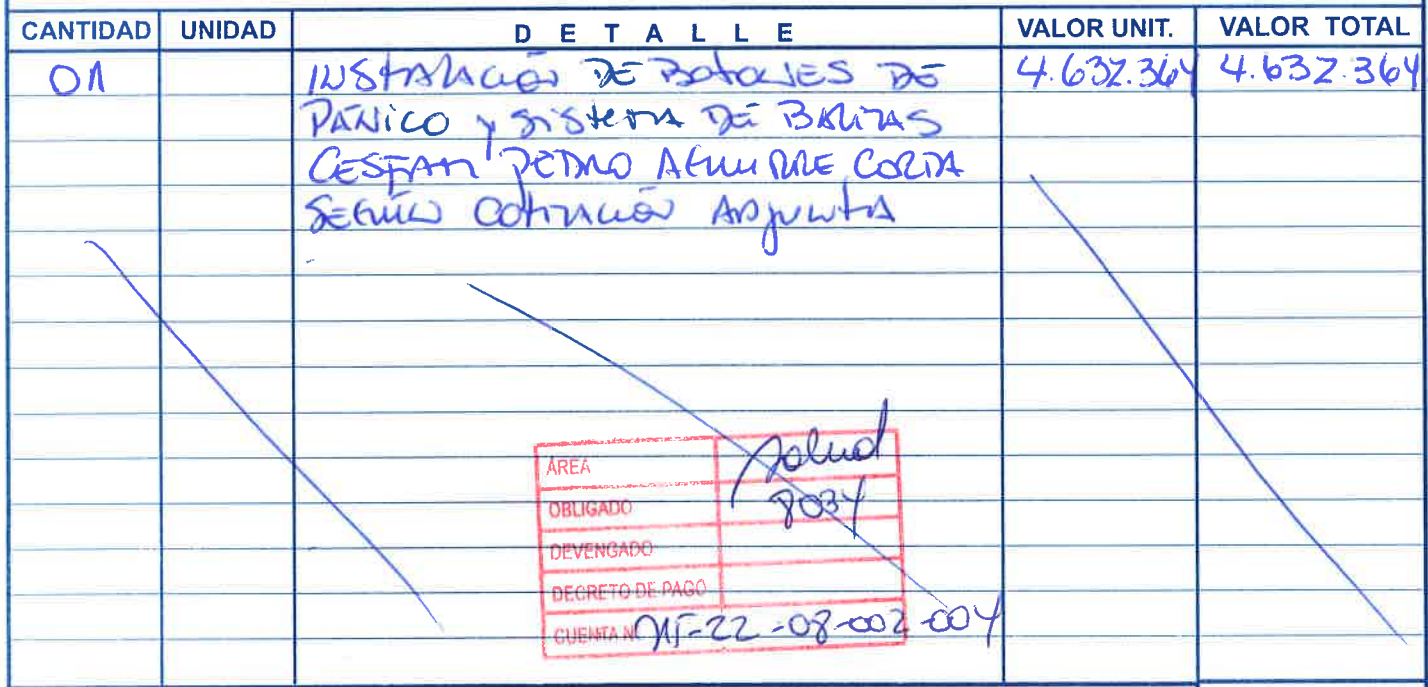 CANTIDAD UNIDAD DETALLE VALOR UNIT. VALOR TOTAL
01 INSTALACIÓN DE BOTONES DE 4.632.364 4.632.364
PÁNICO y SISTEMA DE BALIZAS
CESFAM PEDRO AGUIRRE CERDA
SEGÚN COTIZACIÓN ADJUNTA
ÁREA Salud
OBLIGADO 8034
DEVENGADO
DECRETO DE PAGO
CUENTA N 215-22-08-002-004